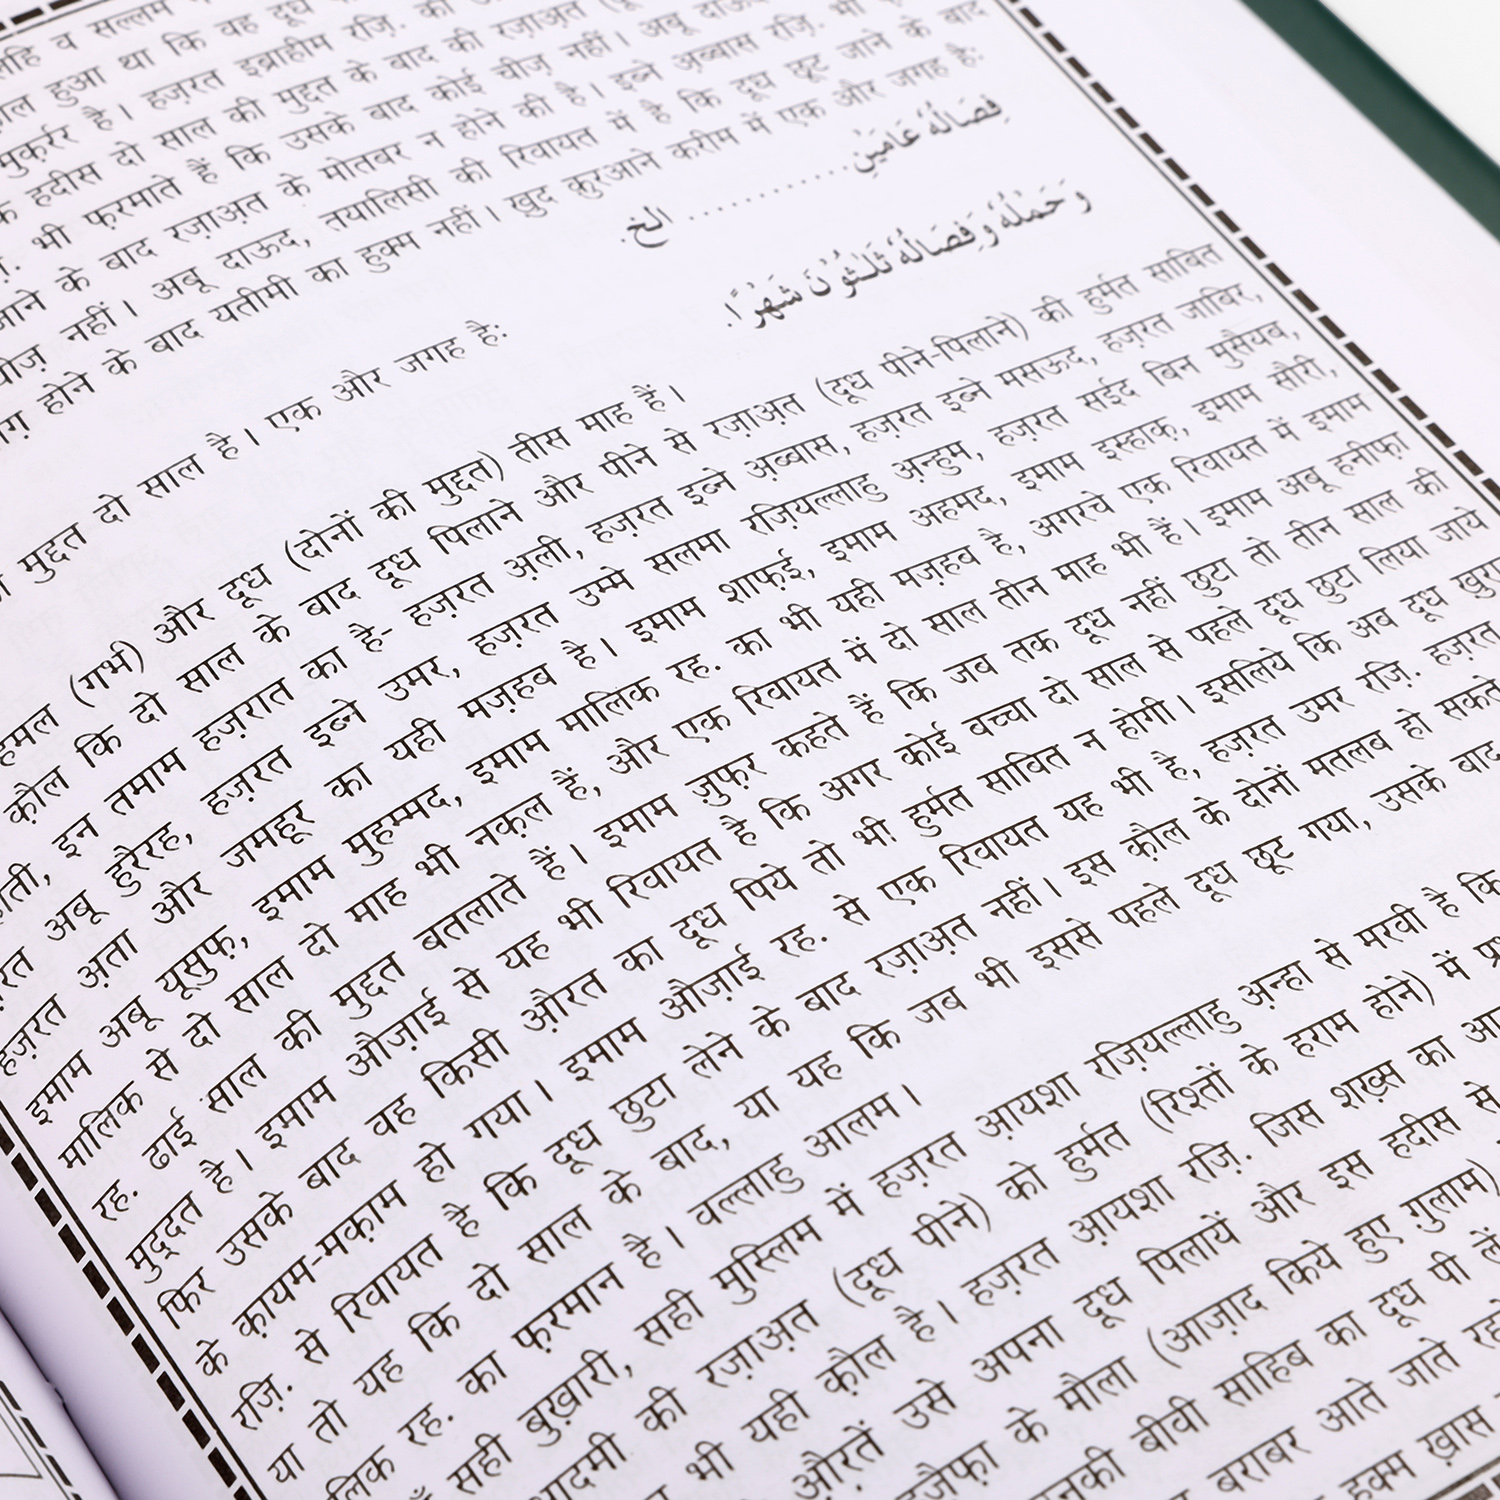 लहि व सल्लम
हुआ था कि वह दूध
मुक़र्रर है। हज़रत इब्राहीम रज़ि. की
हदीस दो साल की मुद्दत के बाद की रज़ाअ़त
भी फ़रमाते हैं कि उसके बाद कोई चीज़ नहीं। अबू दाऊद
जाने के बाद रज़ाअ़त के मोतबर न होने की है। इब्ने अ़ब्बास रज़ि. भी
चीज़ नहीं। अबू दाऊद, तयालिसी की रिवायत में है कि दूध छूट जाने के बाद
होने के बाद यतीमी का हुक्म नहीं। ख़ुद क़ुरआने करीम में एक और जगह है:
فِصَالُهٗ عَامَيْنِ............ الخ.
मुद्दत दो साल है। एक और जगह है:
وَحَمْلُهٗ وَفِصَالُهٗ ثَلٰثُوْنَ شَهْرًا.
हमल (गर्भ) और दूध (दोनों की मुद्दत) तीस माह हैं।
क़ौल कि दो साल के बाद दूध पिलाने और पीने से रज़ाअ़त (दूध पीने-पिलाने) की हुर्मत साबित
इन तमाम हज़रात का है- हज़रत अ़ली, हज़रत इब्ने अ़ब्बास, हज़रत इब्ने मसऊद, हज़रत जाबिर,
अबू हुरैरह, हज़रत इब्ने उमर, हज़रत उम्मे सलमा रज़ियल्लाहु अ़न्हुम, हज़रत सईद बिन मुसैयब,
हज़रत अ़ता और जमहूर का यही मज़हब है। इमाम शाफ़ई, इमाम अहमद, इमाम इस्हाक़, इमाम सौरी,
इमाम अबू यूसुफ़, इमाम मुहम्मद, इमाम मालिक रह. का भी यही मज़हब है, अगरचे एक रिवायत में इमाम
मालिक से दो साल दो माह भी नक़ल हैं, और एक रिवायत में दो साल तीन माह भी हैं। इमाम अबू हनीफ़ा
रह. ढाई साल की मुद्दत बतलाते हैं। इमाम ज़ुफ़र कहते हैं कि जब तक दूध नहीं छुटा तो तीन साल की
मुद्दत है। इमाम औज़ाई से यह भी रिवायत है कि अगर कोई बच्चा दो साल से पहले दूध छुटा लिया जाये
फिर उसके बाद वह किसी औ़रत का दूध पिये तो भी हुर्मत साबित न होगी। इसलिये कि अब दूध ख़ुराक
के क़ायम-मक़ाम हो गया। इमाम औज़ाई रह. से एक रिवायत यह भी है, हज़रत उमर रज़ि. हज़रत
रज़ि. से रिवायत है कि दूध छुटा लेने के बाद रज़ाअ़त नहीं। इस क़ौल के दोनों मतलब हो सकते
या तो यह कि दो साल के बाद, या यह कि जब भी इससे पहले दूध छूट गया, उसके बाद
रह. का फ़रमान है। वल्लाहु आलम।
सही बुख़ारी, सही मुस्लिम में हज़रत आ़यशा रज़ियल्लाहु अ़न्हा से मरवी है कि
आदमी की रज़ाअ़त (दूध पीने) को हुर्मत (रिश्तों के हराम होने) में
भी यही क़ौल है। हज़रत आ़यशा रज़ि. जिस शख़्स का
औ़रतें उसे अपना दूध पिलायें और इस हदीस से
के मौला (आज़ाद किये हुए ग़ुलाम)
बीवी साहिब का दूध पी लें
बराबर आते जाते रहो
हुक्म ख़ास